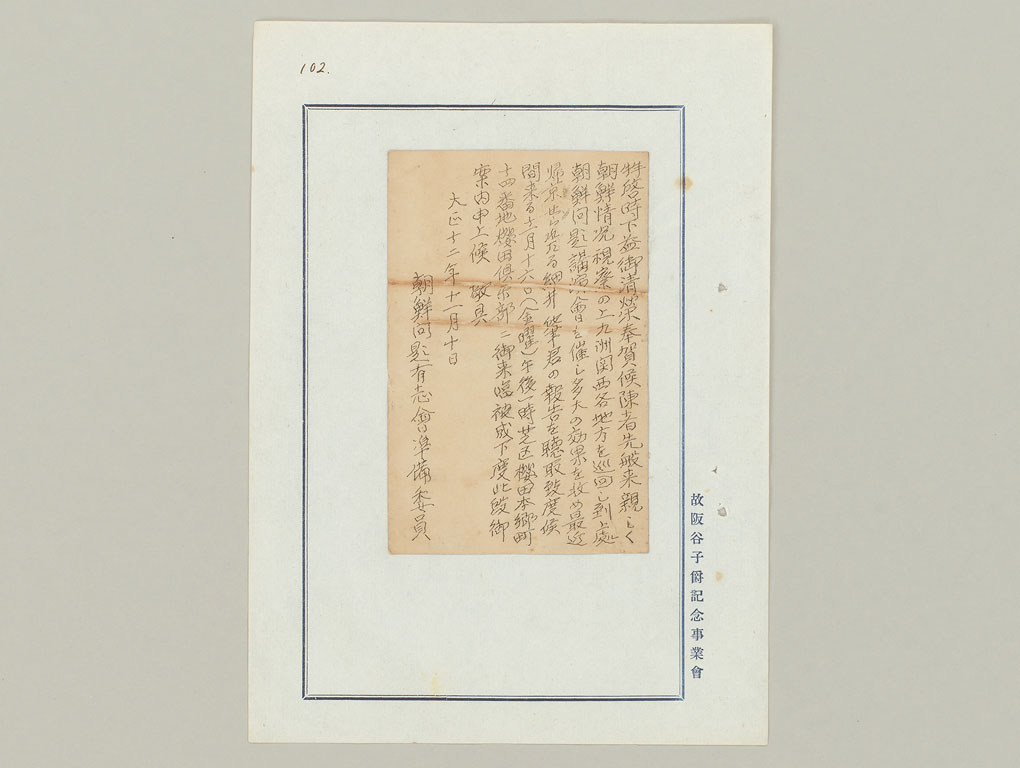 102.
拝啓時下益御清榮奉賀候陳者先般来親しく
朝鮮情況視察の上九洲関西各地方を巡回し到る處
朝鮮问題講演會を催し多大の効果を收め最近
帰京せられたる細井肇君の報告を聴取致度候
間来る十一月十六日(金曜)午後一時芝区櫻田本郷町
十四番地櫻田倶楽部ニ御来臨被成下度此段御
案内申上候 敬具
大正十二年十一月十日
朝鮮问題有志會準備委員
故阪谷子爵記念事業會